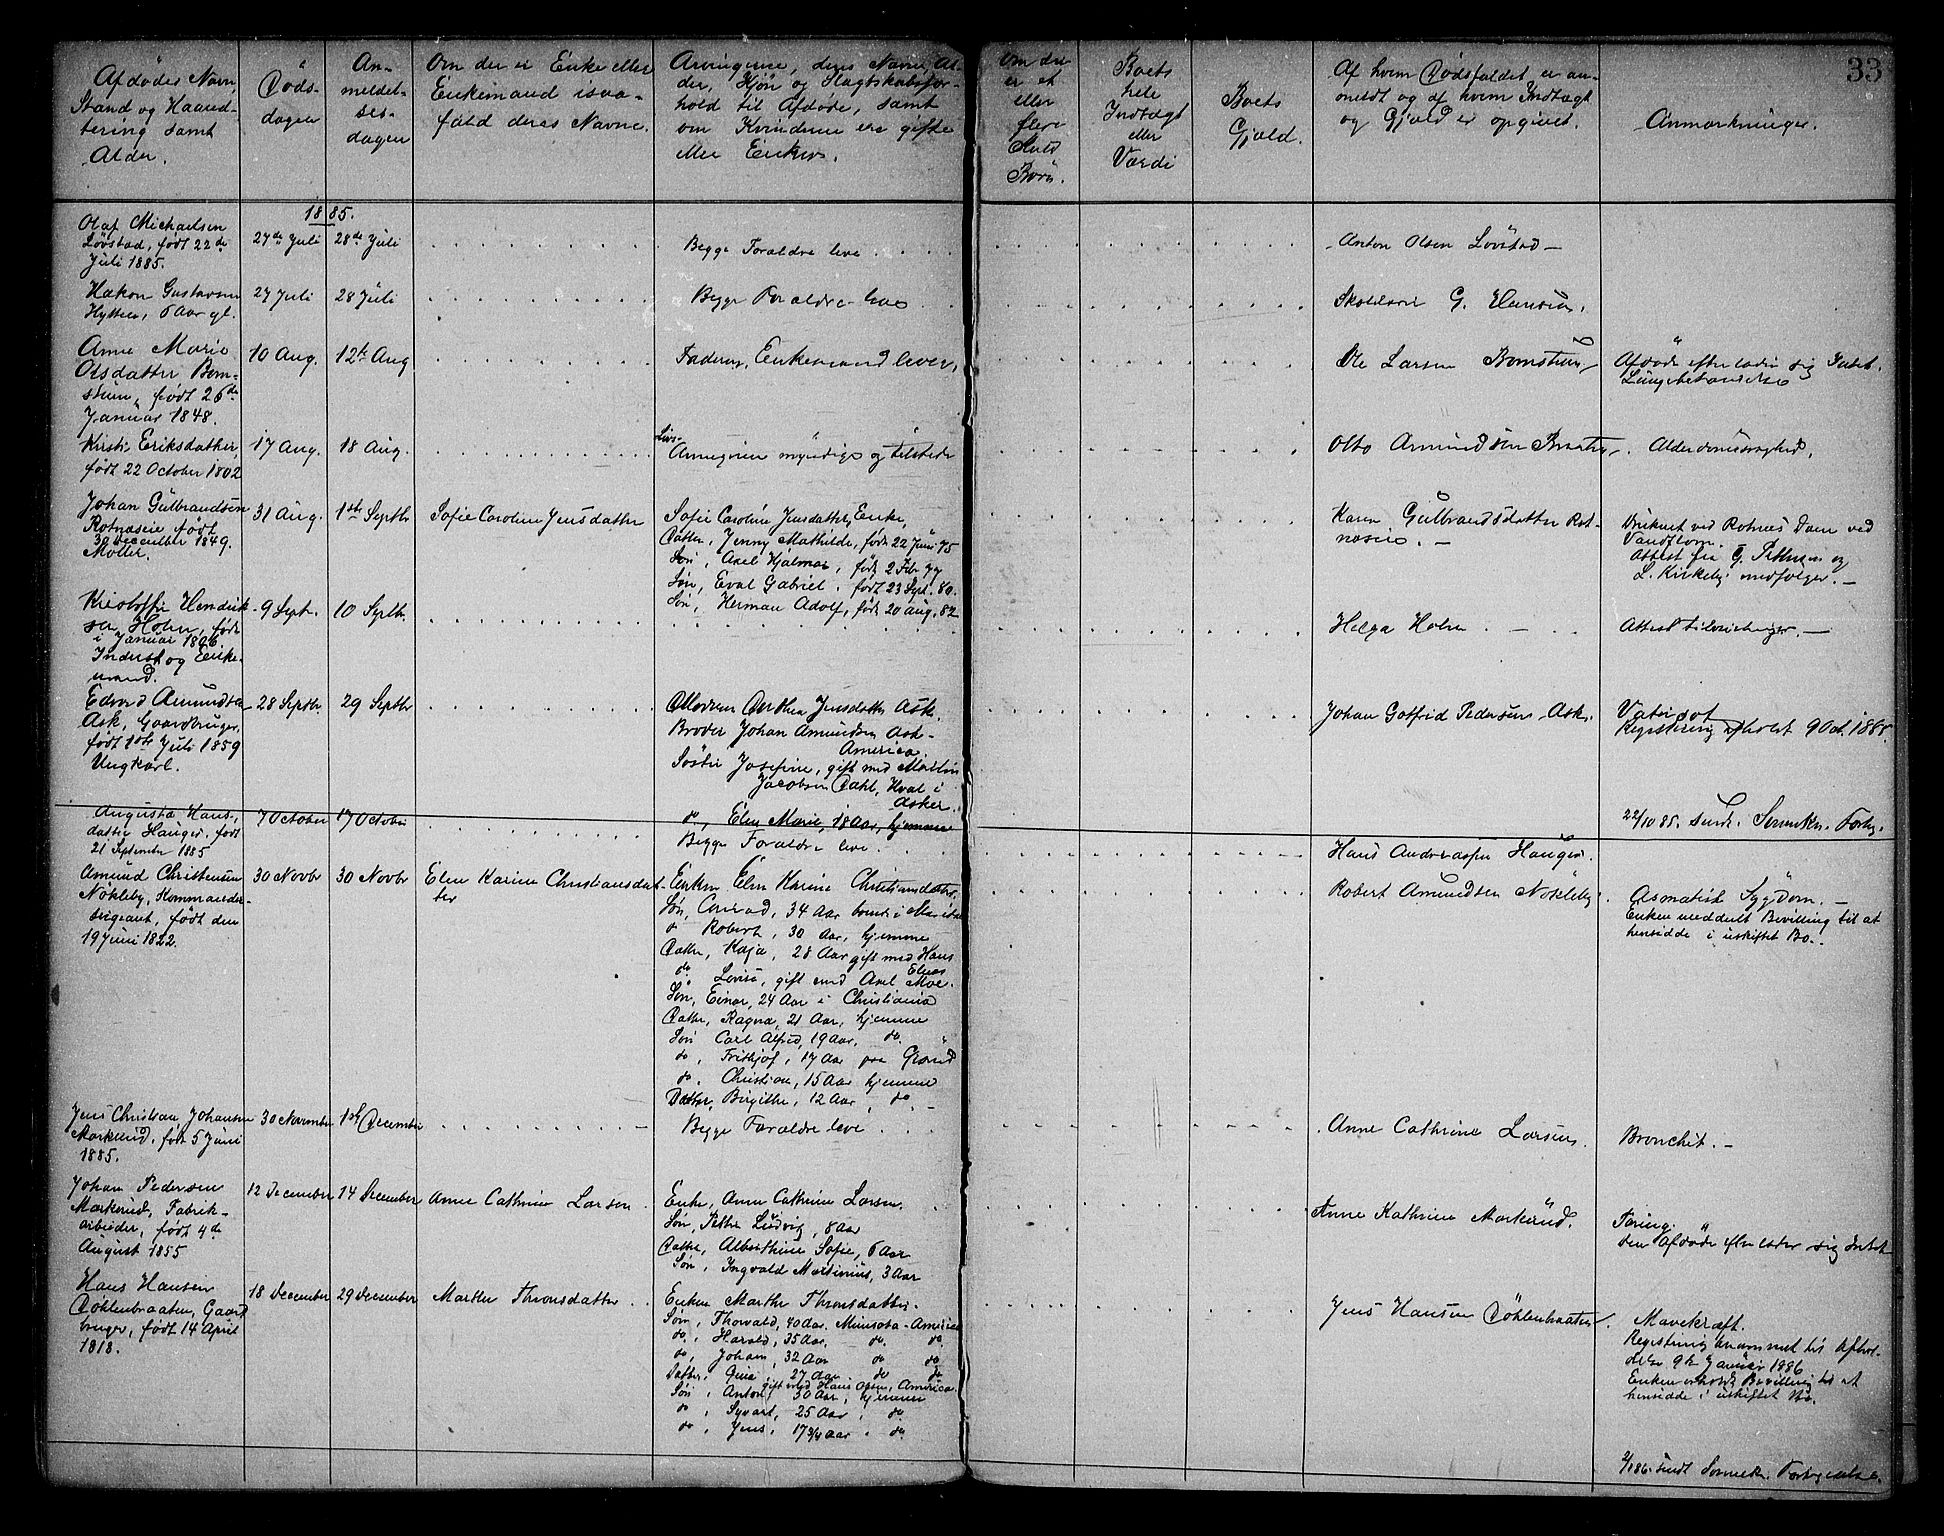 33
Afdødes Navn,
Stand og Haand-
tering samt
Alder.
Døds-
dagen
An-
meldel-
ses-
dagen
Om der er Enke eller
Enkemand isaa-
fald deres Navne.
Arvingerne, deres Navne Al-
der, Kjøn og Slagtskabsfor-
hold til Afdøde, samt
om Kvinderne ere gifte
eller Enker.
Om der
er et
eller
flere
Kuld
Børn.
Boets
hele
Indtægt
eller
Værdi
Boets
Gjæld.
Af hvem Dødsfaldet er an-
meldt og af hvem Indtægt
og Gjæld er opgivet.
Anmærkninger.
1885.
Olaf Michaelsen
Løvstad, født 22de
Juli 1885.
27de Juli
28de Juli
Begge Forældre leve
Anton Olsen Løvstad
Haakon Gustavsen
Hytten, 6 Aar gl.
27 Juli
28 Juli
Begge Forældre leve
G. Hansen
Anne Marie
Olsdatter Bom-
stuen, født 26de
Januar 1848.
10 Aug.
12te Aug
Faderen, Enkemand lever,
Ole Larsen Bomstuen
Afdøde efterlader sig Intet.
Lungebetændelse
Kristi Eriksdatter
født 22 October 1802
17 Aug.
18 Aug.
Livs-
Arvingerne myndige og tilstede
Otto Amundsen Braaten
Alderdomssvaghed.
Johan Gulbrandsen
Rotnæseie født
30 December 1849.
Møller.
31 Aug.
1ste Septbr
Sofie Caroline Jensdatter
Sofie Caroline Jensdatter, Enke,
Datter, Jenny Mathilde, født 22 Juni 75
Søn, Axel Hjalmar, født 2 Febr 77
Søn, Eval Gabriel, født 23 Sept. 80.
Søn, Herman Adolf, født 20 Aug. 82
Karen Gulbrandsdatter Rot-
næseie. —
Druknet ved Rotnes Dam ved
Vandflom.
Attest fra G. Pettersen og
L. Kirkeby medfølger. —
Kristoffer Hendrik-
sen Holm, født
i Januar 1806
Inderst og Enke-
mand.
9 Sept.
10 Septbr.
Helga Holm
Attest
Edvard Amundsen
Ask, Gaardbruger,
født 1ste Juli 1859
Ungkarl.
28 Septbr.
29 Septbr
Moderen Dorthea Jensdatter Ask.
Broder Johan Amundsen Ask-
America.
Søster Josefine, gift med Martin
Jacobsen Dahl, Hval i
Asker.
do, Elen Marie, 18 Aar, hjemme
Johan Gotfrid Pedersen Ask.
Registrering afholdt 9 Oct. 1885.
22/10 85. sendt Sorenskr. Forteg.
Augusta Hans-
datter Hauger, født
21 September 1885
7 October
17 October
Begge Forældre leve
Hans Andreassen Hauger.
Amund Christensen
Nökleby, Kommander-
sergeant, født den
19 Juni 1822.
30 Novbr
30 Novbr
Elen Karine Christiansdat-
ter
Enken Elen Karine Christiansdatter,
Søn, Conrad, 34 Aar
do Robert, 30 Aar, hjemme
Datter, Kaja, 28 Aar gift med Hans
do Lovise, gift med Axel Moe.
Søn, Einar, 24 Aar i Christiania
Datter, Ragna, 21 Aar, hjemme
Søn Carl Alfred, 19 Aar, do.
do, Frithjof, 17 Aar paa Grønd
do. Christian, 15 Aar hjemme
Datter, Birgithe, 12 Aar, do.
Robert Amundsen Nökleby.
Asmatisk Sygdom. —
Enken meddelt Bevilling til at
hensidde i uskiftet Bo.
Jens Christian Johansen
Markerud, født 5 Juni
1885.
30 November
1ste December
Begge Forældre leve
Anne Cathrine Larsen.
Bronchit. —
Johan Pedersen
Markerud, Fabrik-
arbeider, født 4de
August 1855
12 December
14 December
Anne Cathrine Larsen
Enke, Anne Cathrine Larsen.
Søn, Petter Ludvig, 8 Aar
Datter, Alberthine Sofie, 6 Aar
Søn, Ingvald Martinius, 3 Aar
Anne Kathrine Markerud.
Tæring.
den Afdøde efterlader sig Intet
Hans Hansen
Döhlenbraaten, Gaard-
bruger, født 14 April
1818.
18 December
29 December
Marthe Thronsdatter
Enken Marthe Thronsdatter
Søn, Thorvald, 40 Aar. Minsota-America
do, Harald, 35 Aar. do do.
do, Johan, 32 Aar do do
Datter, 27 Aar do do
gift med Hans Olsen, America.
Søn, Anton, 30 Aar, hjemme
do, Syvart, 25 Aar, do.
do, Jens, 17 3/4 Aar, do.
Jens Hansen Döhlenbraaten.
Mavekræft.
Registrering berammet til Afhol-
delse 9de Januar 1886
Enken erholdt Bevilling til at
hensidde i uskiftet Bo.
sendt Sorenskr. Fortegnelse.